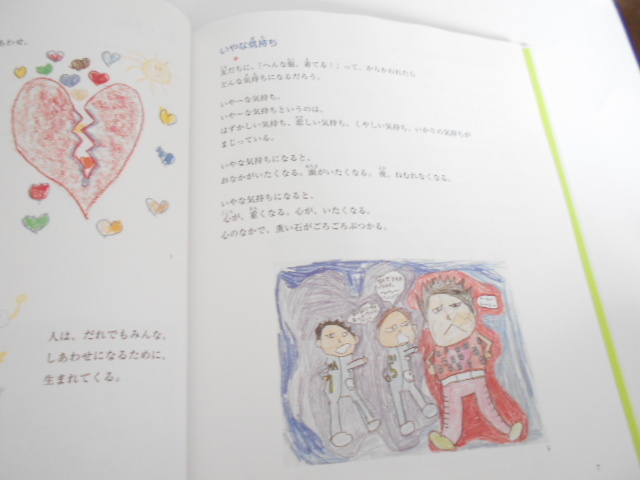 あわせ。
人は、だれでもみんな、
しあわせになるために、
生まれてくる。
いやな気持ち
友だちに、「へんな服、着てる！」って、からかわれたら
どんな気持ちになるだろう。
いやーな気持ち。
いやーな気持ちというのは、
はずかしい気持ち、悲しい気持ち、くやしい気持ち、いかりの気持ちが
まじっている。
いやな気持ちになると、
おなかがいたくなる。頭がいたくなる。夜、ねむれなくなる。
いやな気持ちになると、
心が、重くなる。心が、いたくなる。
心のなかで、重い石がごろごろぶつかる。
7